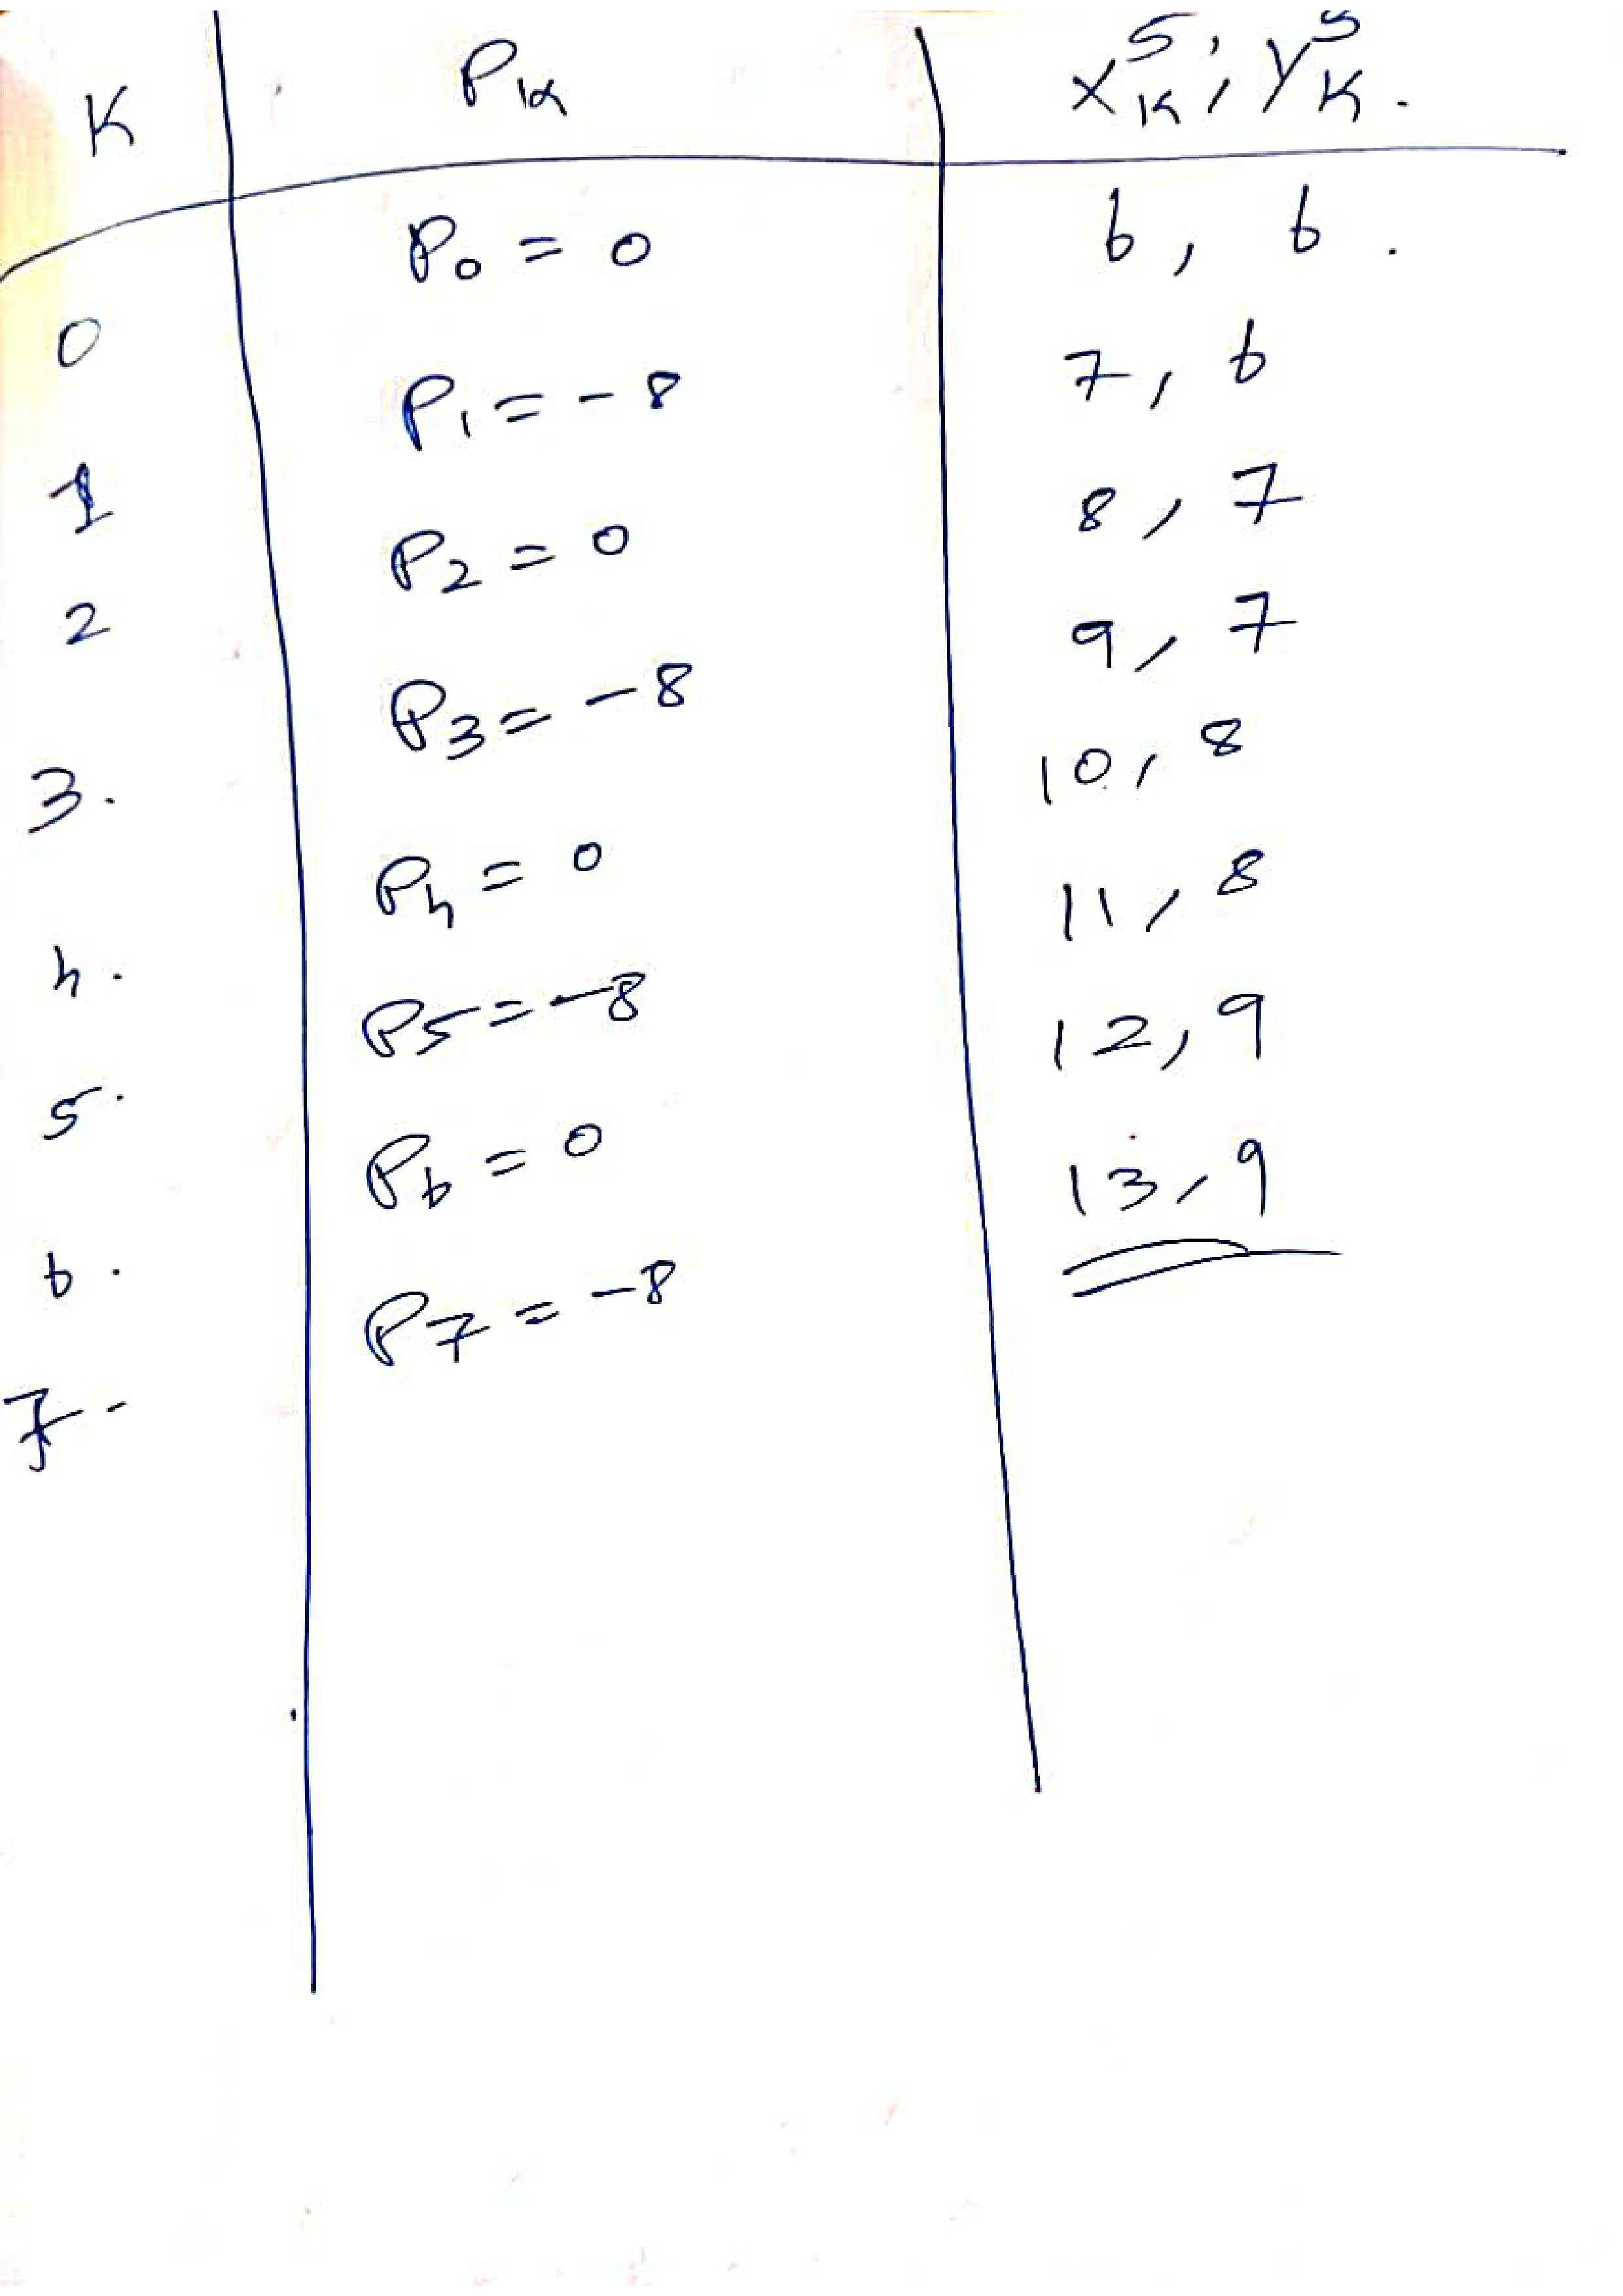 K Pk x^s_k, y^s_k.
0 P0 = 0 6, 6.
1 P1 = -8 7, 6
2 P2 = 0 8, 7
3. P3 = -8 9, 7
4. P4 = 0 10, 8
5. P5 = -8 11, 8
6. P6 = 0 12, 9
7- P7 = -8 13, 9